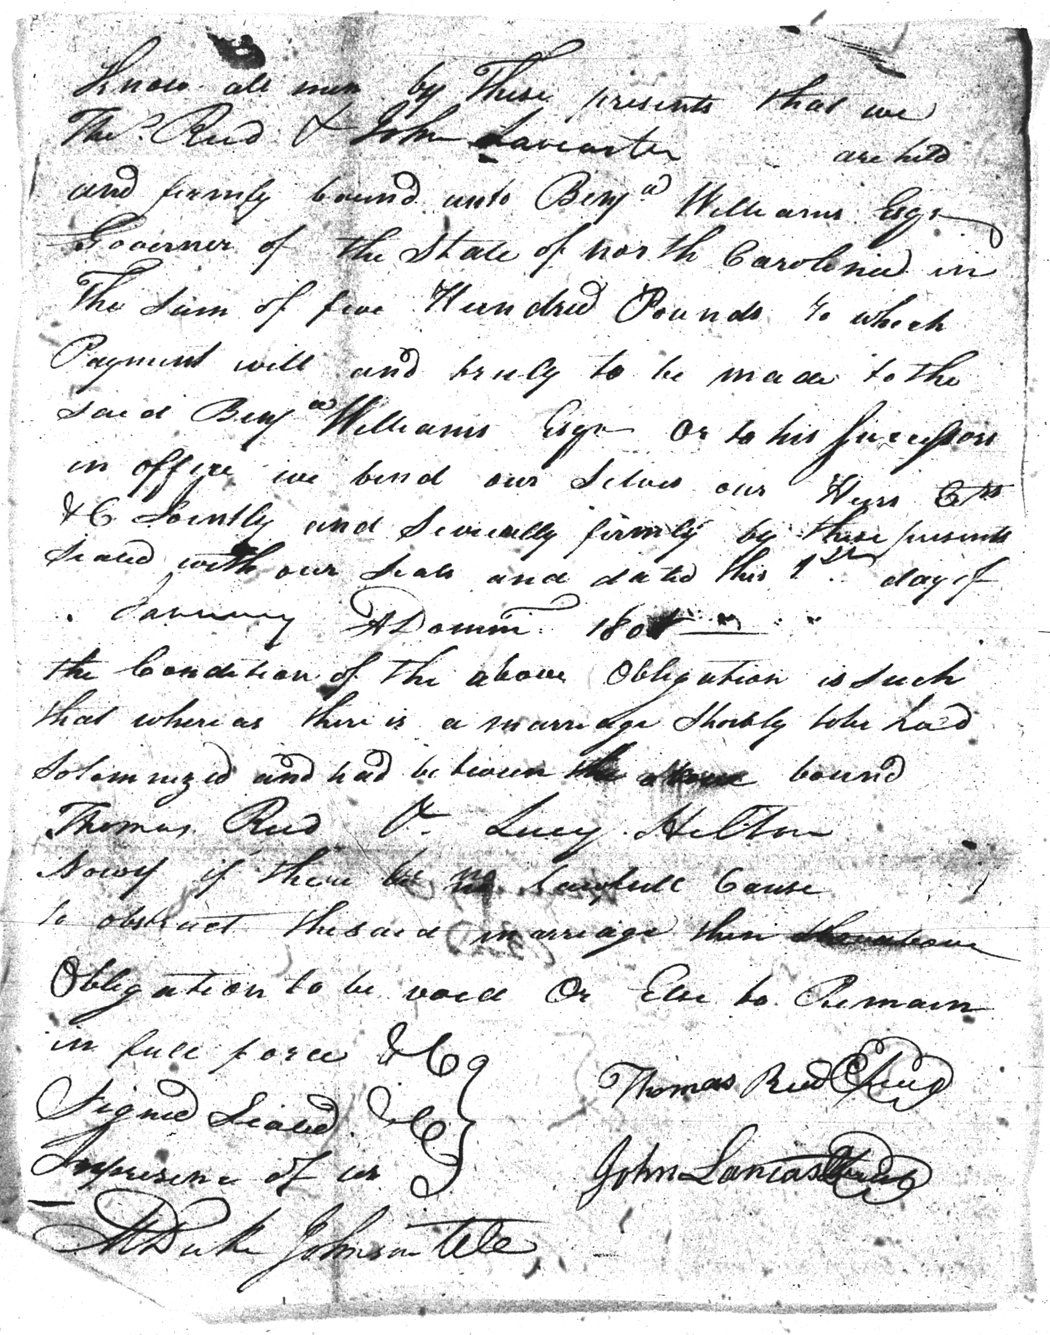 Know all men by These presents that we
Thos. Reed & John Lancaster are held
and firmly bound unto Benja Williams Esqr
Governer of the State of North Carolina in
The Sum of five Hundred Pounds to which
Payment will and truly to be made to the
said Benja Williams Esqr Or to his Successors
in office we bend our Selves our Heirs
&C Jointly and Severally firmly by these presents
Sealed with our Seals and dated this 1st day of
January ADomini 180
the Condition of the above Obligation is such
that where as there is a marriage Shortly to be had
Solemnized and had between the above bound
Thomas Reed & Lucy Hilton
Nowf if there be no lawfull Cause
to obstruct the said marriage then the above
Obligation to be void Or Else to Remain
in full force &C
Signed Sealed &C
In presence of us
Thomas Reed (Seal)
John Lancaster (Seal)
M Duke Johnson